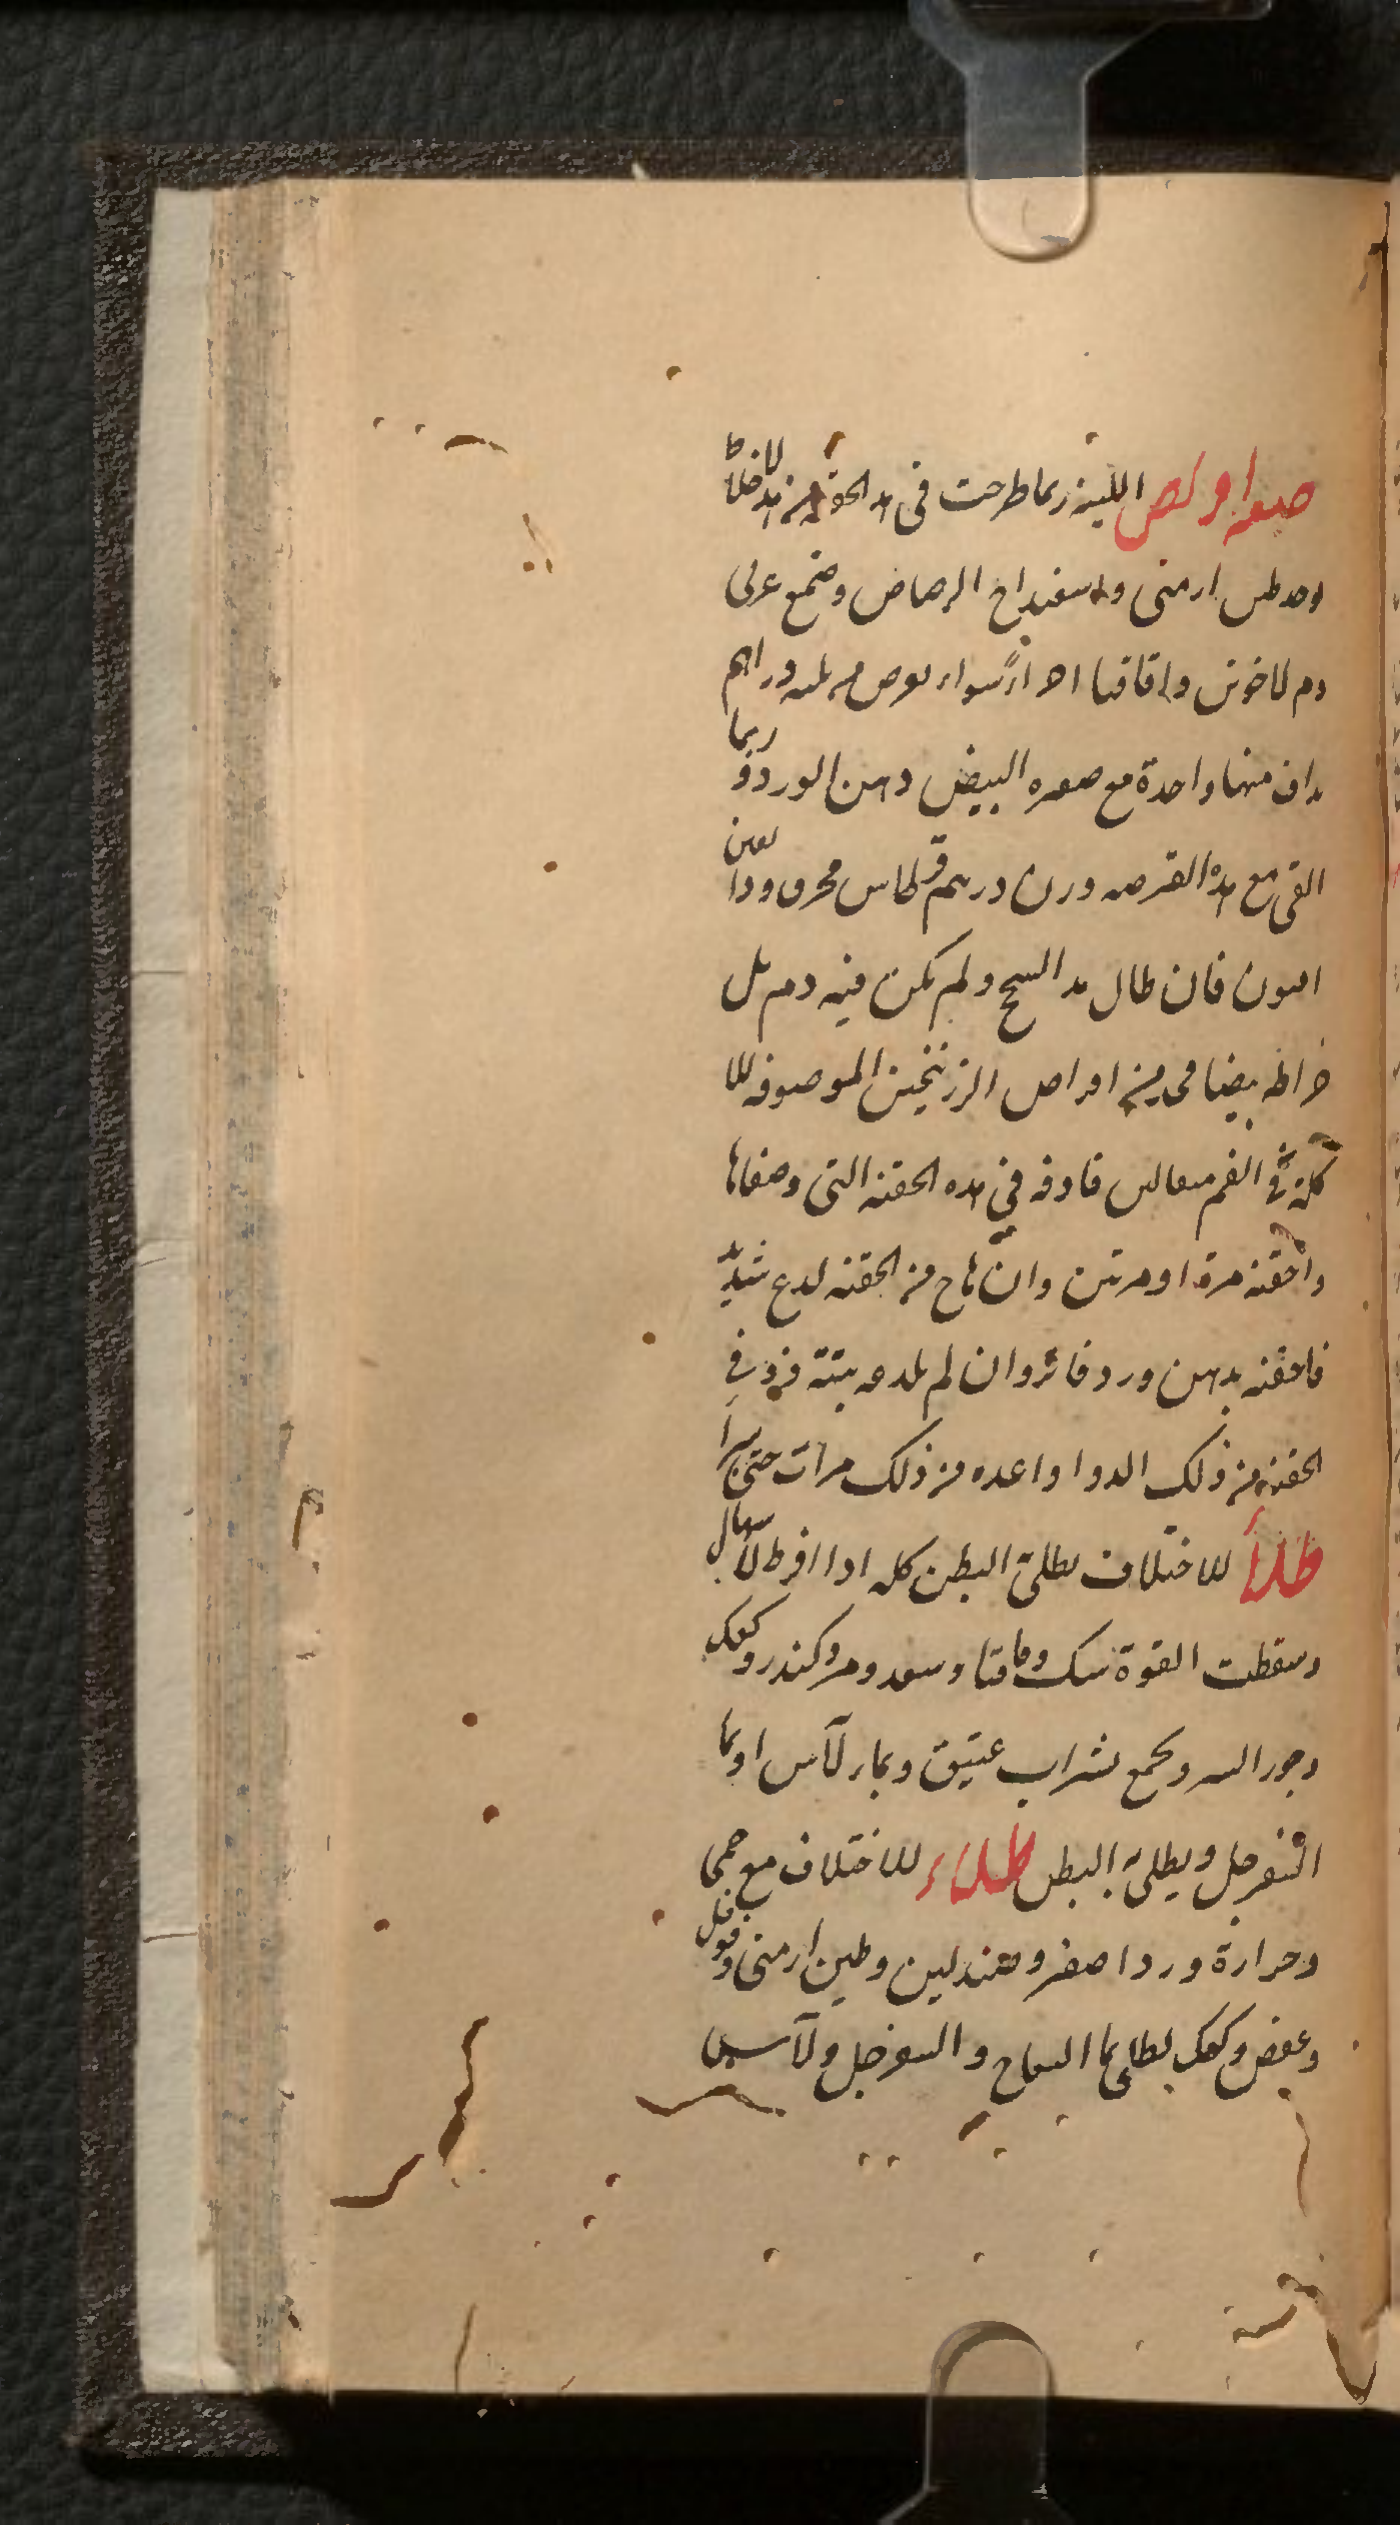 صفة اقراص اللينة ربما طرحت في هذه الحقنة من هذه الاخلاط
وحد طين ارمني واسفيداج الرصاص وصمغ عربي
دم لاخوين واقاقيا اجزاء سواء يقرص من ثلثه دراهم
يداف منها واحدة مع صفرة البيض ودهن الورد وربما
القي مع هذه القرصه وزن درهم قرطاس محرق ودانقين
افيون فان طال هذا السحج ولم يكن فيه دم بل
خراطه بيضا فمن اقراص الزرنيخين الموصوفة للا
كلة في الفم مثقالين فادفه في هذه الحقنة التي وصفناها
واحقنه مرة او مرتين وان هاج من الحقنه لدع شديد
فاحقنه بدهن ورد فاتر وان لم يلدعه بتة فزد في
الحقنة من ذلك الدوا واعده من ذلك مرات حتى يبرا
طلاء للاختلاف يطلى البطن كله اذا افرط الاسهال
وسقطت القوة سك واقاقيا وسعد ومر وكندر وكعك
وجوز السرو ويجمع بشراب عتيق وبماء الآس او بما
السفرجل ويطلى به البطن طلاء للاختلاف مع حمى
وحرارة ورد اصفر وصندلين وطين ارمني وفوفل
وعفص وكعك يطلى بما التفاح والسفرجل والآس